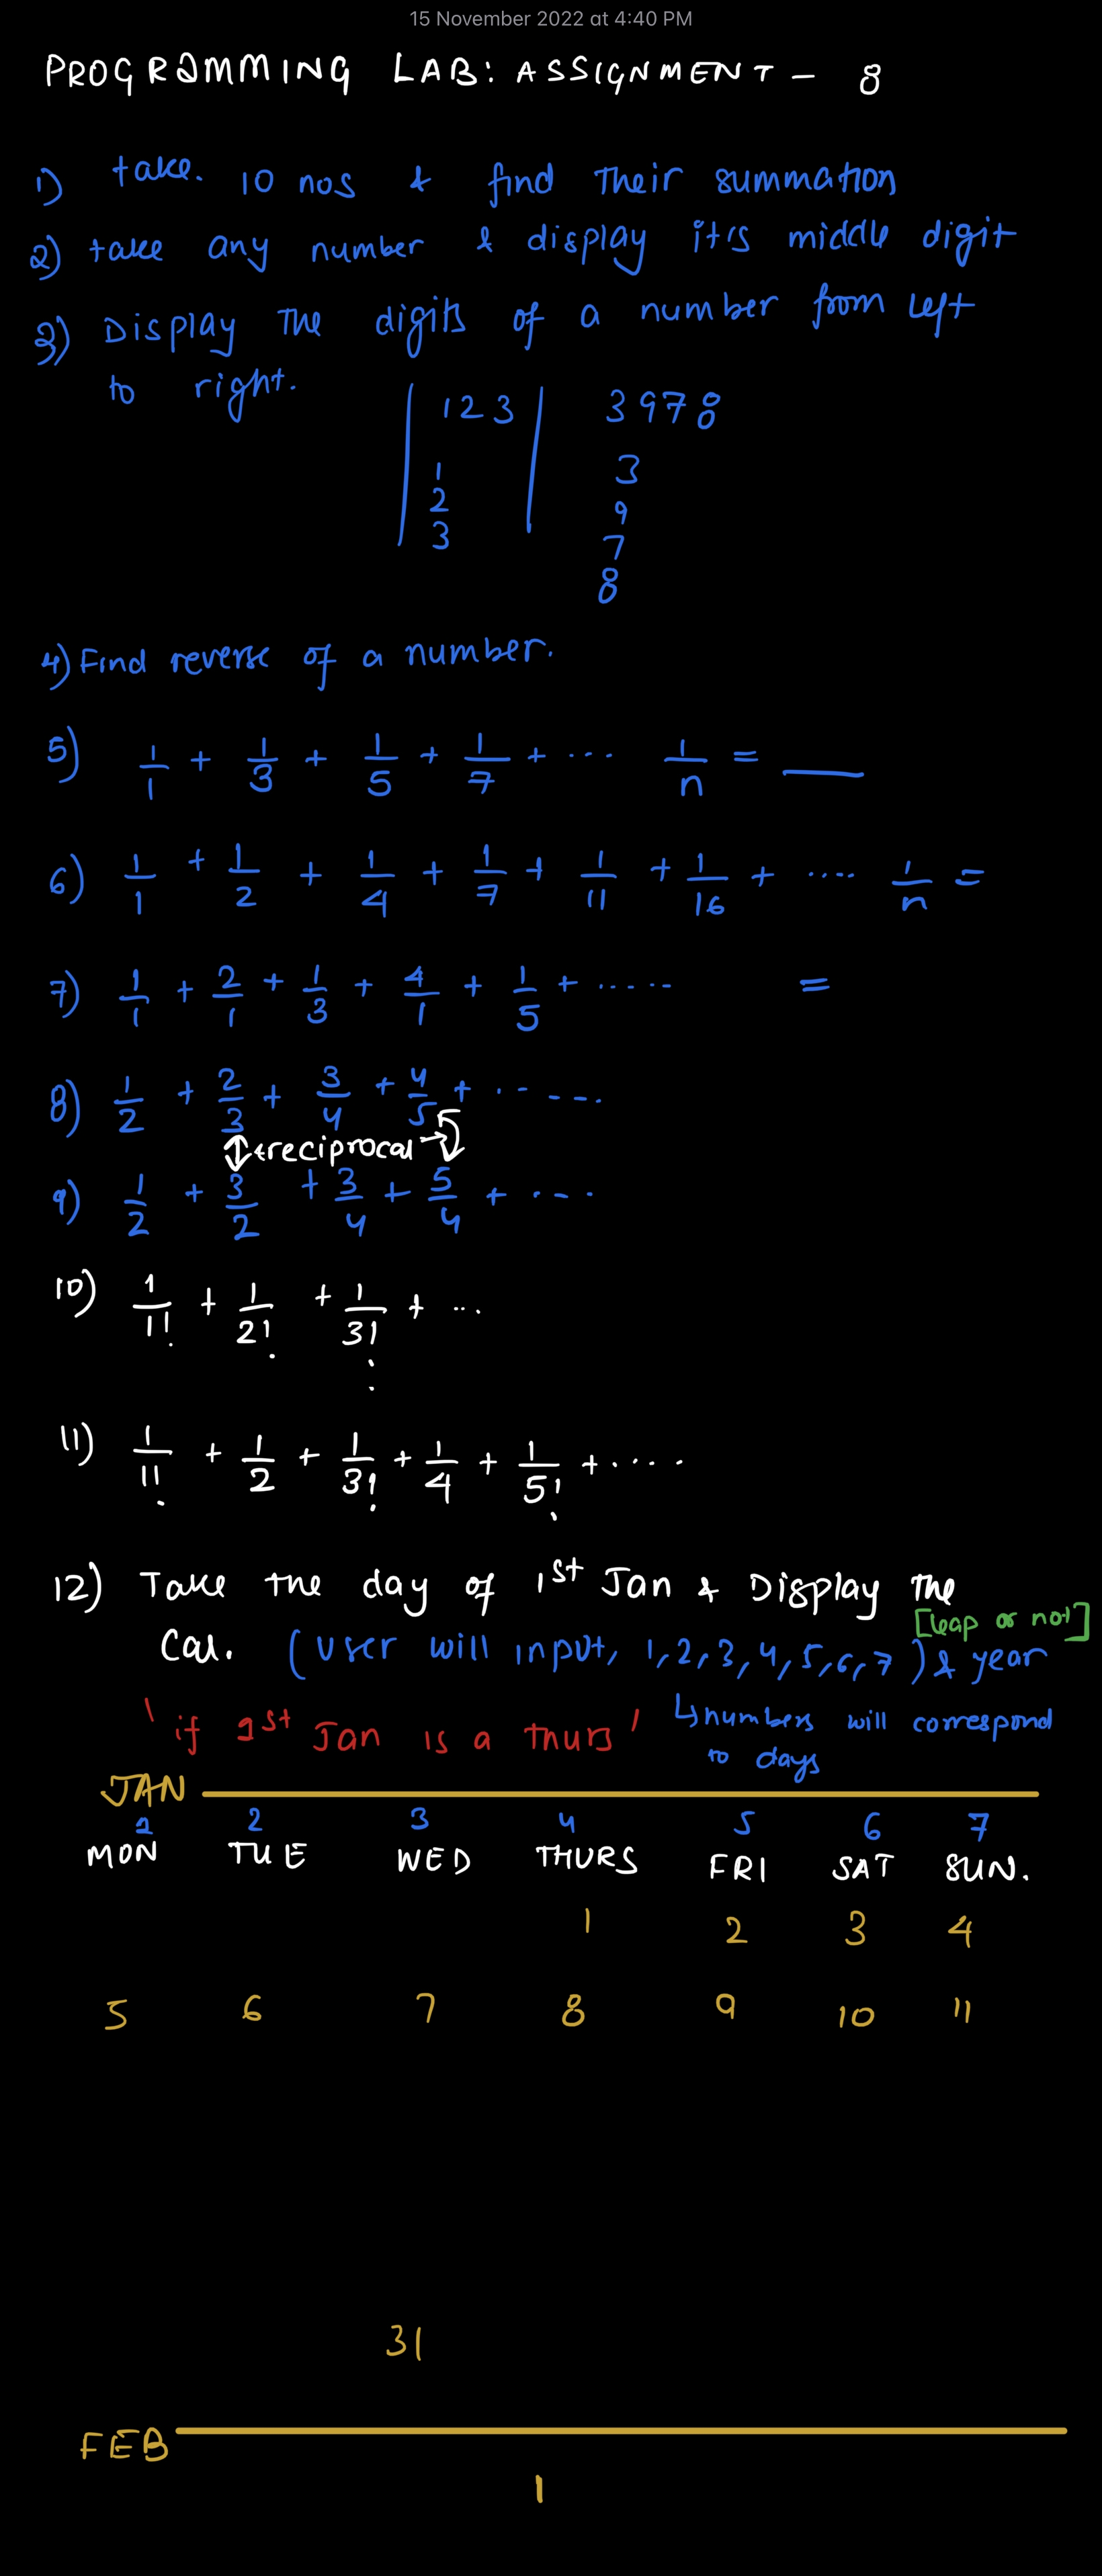 15 November 2022 at 4:40 PM
PROGRAMMING LAB: ASSIGNMENT - 8
1) take. 10 nos & find their summation
2) take any number & display it's middle digit
3) Display the digits of a number from left
to right.
123 3978
1 3
2 9
3 7
8
4) Find reverse of a number.
5) 1/1 + 1/3 + 1/5 + 1/7 + ... 1/n = ___
6) 1/1 + 1/2 + 1/4 + 1/7 + 1/11 + 1/16 + .... 1/n =
7) 1/1 + 2/1 + 1/3 + 4/1 + 1/5 + ...... =
8) 1/2 + 2/3 + 3/4 + 4/5 + ......
reciprocal
9) 1/2 + 3/2 + 3/4 + 5/4 + ....
10) 1/1! + 1/2! + 1/3! + ...
11) 1/1! + 1/2 + 1/3! + 1/4 + 1/5! + ....
12) Take the day of 1st Jan & Display the
[leap or not]
Cal. (User will input, 1,2,3,4,5,6,7) & year
↳ numbers will correspond
to days
'if 1st Jan is a thurs'
JAN
1 2 3 4 5 6 7
MON TUE WED THURS FRI SAT SUN.
1 2 3 4
5 6 7 8 9 10 11
31
FEB
1